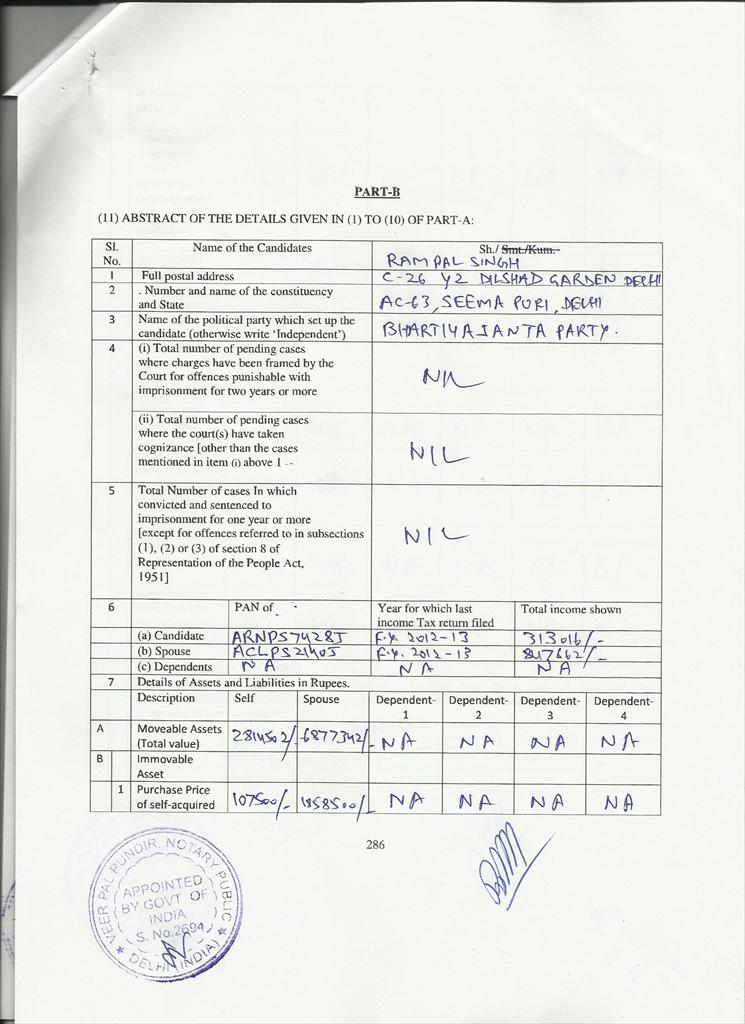 PART-B
(11) ABSTRACT OF THE DETAILS GIVEN IN (1) TO (10) OF PART-A:
Sl. No. Name of the Candidates Sh./ Smt./Kum.
RAMPAL SINGH
1 Full postal address C-26 Y2 DILSHAD GARDEN DELHI
2 . Number and name of the constituency
and State AC-63, SEEMA PURI, DELHI
3 Name of the political party which set up the
candidate (otherwise write 'Independent') BHARTIYA JANTA PARTY.
4 (i) Total number of pending cases
where charges have been framed by the
Court for offences punishable with
imprisonment for two years or more
NIL
(ii) Total number of pending cases
where the court(s) have taken
cognizance [other than the cases
mentioned in item (i) above 1 --
NIL
5 Total Number of cases In which
convicted and sentenced to
imprisonment for one year or more
[except for offences referred to in subsections
(1), (2) or (3) of section 8 of
Representation of the People Act,
1951]
NIL
6 PAN of Year for which last
income Tax return filed Total income shown
(a) Candidate ARNPS7428J F.Y. 2012-13 313016/-
(b) Spouse F.Y. 2012-13 847662/-
(c) Dependents NA NA NA
7 Details of Assets and Liabilities in Rupees.
Description Self Spouse Dependent-1 Dependent-2 Dependent-3 Dependent-4
A Moveable Assets
(Total value) 2814502/- 6877342/- NA NA NA NA
B Immovable
Asset
1 Purchase Price
of self-acquired 107500/- 1858500/- NA NA NA NA
286
VEER PAL PUNDIR, NOTARY PUBLIC
APPOINTED
BY GOVT OF
INDIA
S. No.2694
DELHI (INDIA)